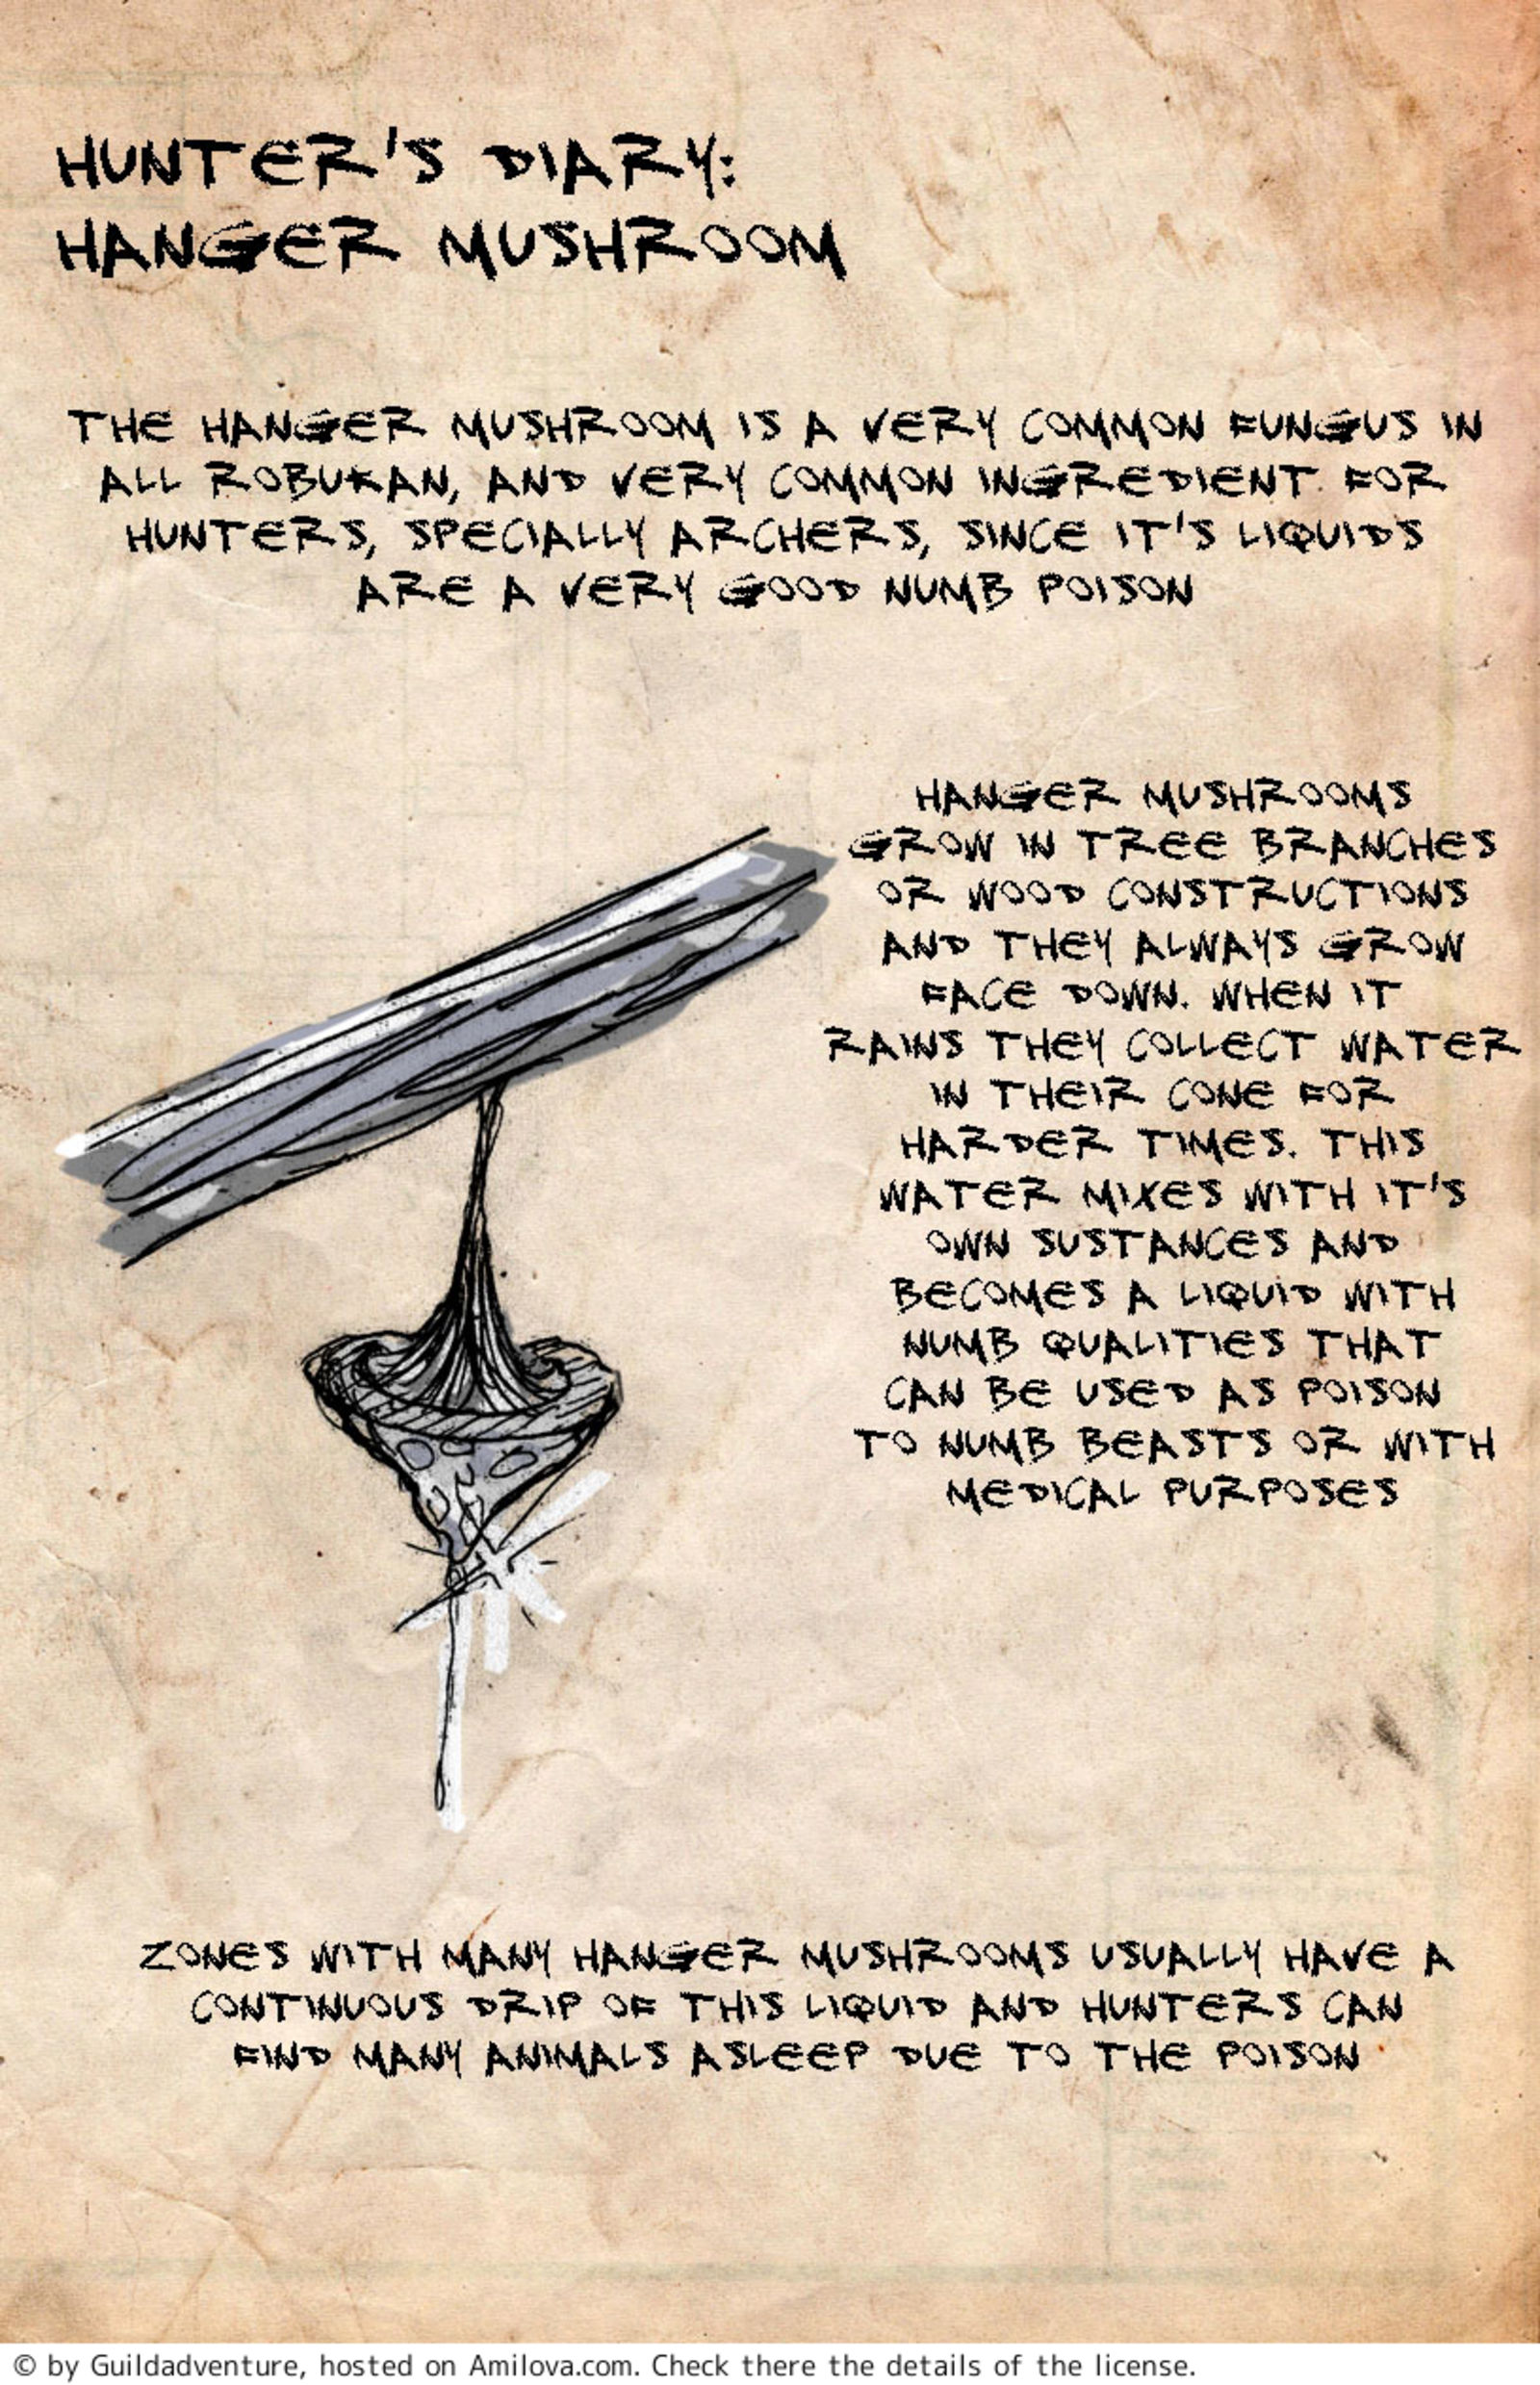 HUNTER'S DIARY:
HANGER MUSHROOM
THE HANGER MUSHROOM IS A VERY COMMON FUNGUS IN
ALL ROBUKAN, AND VERY COMMON INGREDIENT FOR
HUNTERS, SPECIALLY ARCHERS, SINCE IT'S LIQUIDS
ARE A VERY GOOD NUMB POISON
HANGER MUSHROOMS
GROW IN TREE BRANCHES
OR WOOD CONSTRUCTIONS
AND THEY ALWAYS GROW
FACE DOWN. WHEN IT
RAINS THEY COLLECT WATER
IN THEIR CONE FOR
HARDER TIMES. THIS
WATER MIXES WITH IT'S
OWN SUSTANCES AND
BECOMES A LIQUID WITH
NUMB QUALITIES THAT
CAN BE USED AS POISON
TO NUMB BEASTS OR WITH
MEDICAL PURPOSES
ZONES WITH MANY HANGER MUSHROOMS USUALLY HAVE A
CONTINUOUS DRIP OF THIS LIQUID AND HUNTERS CAN
FIND MANY ANIMALS ASLEEP DUE TO THE POISON
© by Guildadventure, hosted on Amilova.com. Check there the details of the license.